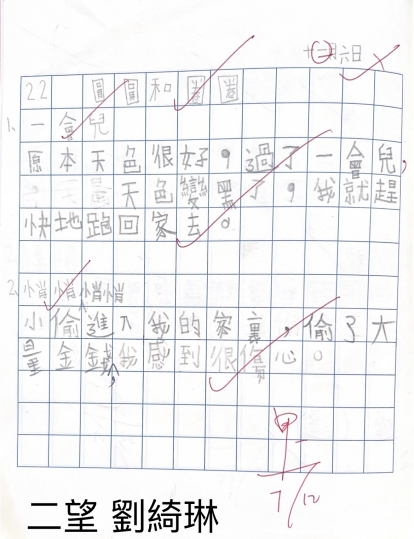 十二月六日
22 圓圓和圈圈
1. 一會兒
原本天色很好，過了一會兒，
天色變黑了，我就趕
快地跑回家去。
2. 悄悄 悄悄
小偷進入我的家裏，偷了大
量金錢，我感到很傷心。
甲
7/12
二望 劉綺琳